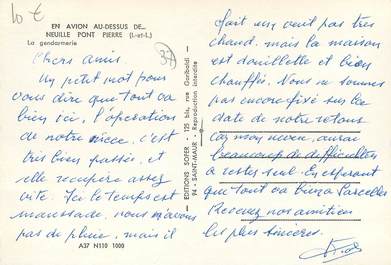 10 €
EN AVION AU-DESSUS DE...
NEUILLE PONT PIERRE (I.-et-L.)
La gendarmerie
37
Chers amis.
Un petit mot pour
vous dire que tout va
bien ici. l'opération
de notre nièce, c'est
très bien passée, et
elle récupère assez
vite. Ici le temps est
maussade, nous n'avons
pas de pluie, mais il
A37 N110 1000
EDITIONS SOFER - 125 bis, rue Garibaldi
94 - SAINT-MAUR - Reproduction interdite
fait un vent pas très
chaud. mais la maison
est douillette et bien
chauffée. Nous ne sommes
pas encore fixé sur la
date de notre retour
Car mon neveu, aurai
beaucoup de difficultées
a rester seul. En espérant
que tout va bien a Sarcelles
Recevez nos amitiées
les plus sincères.